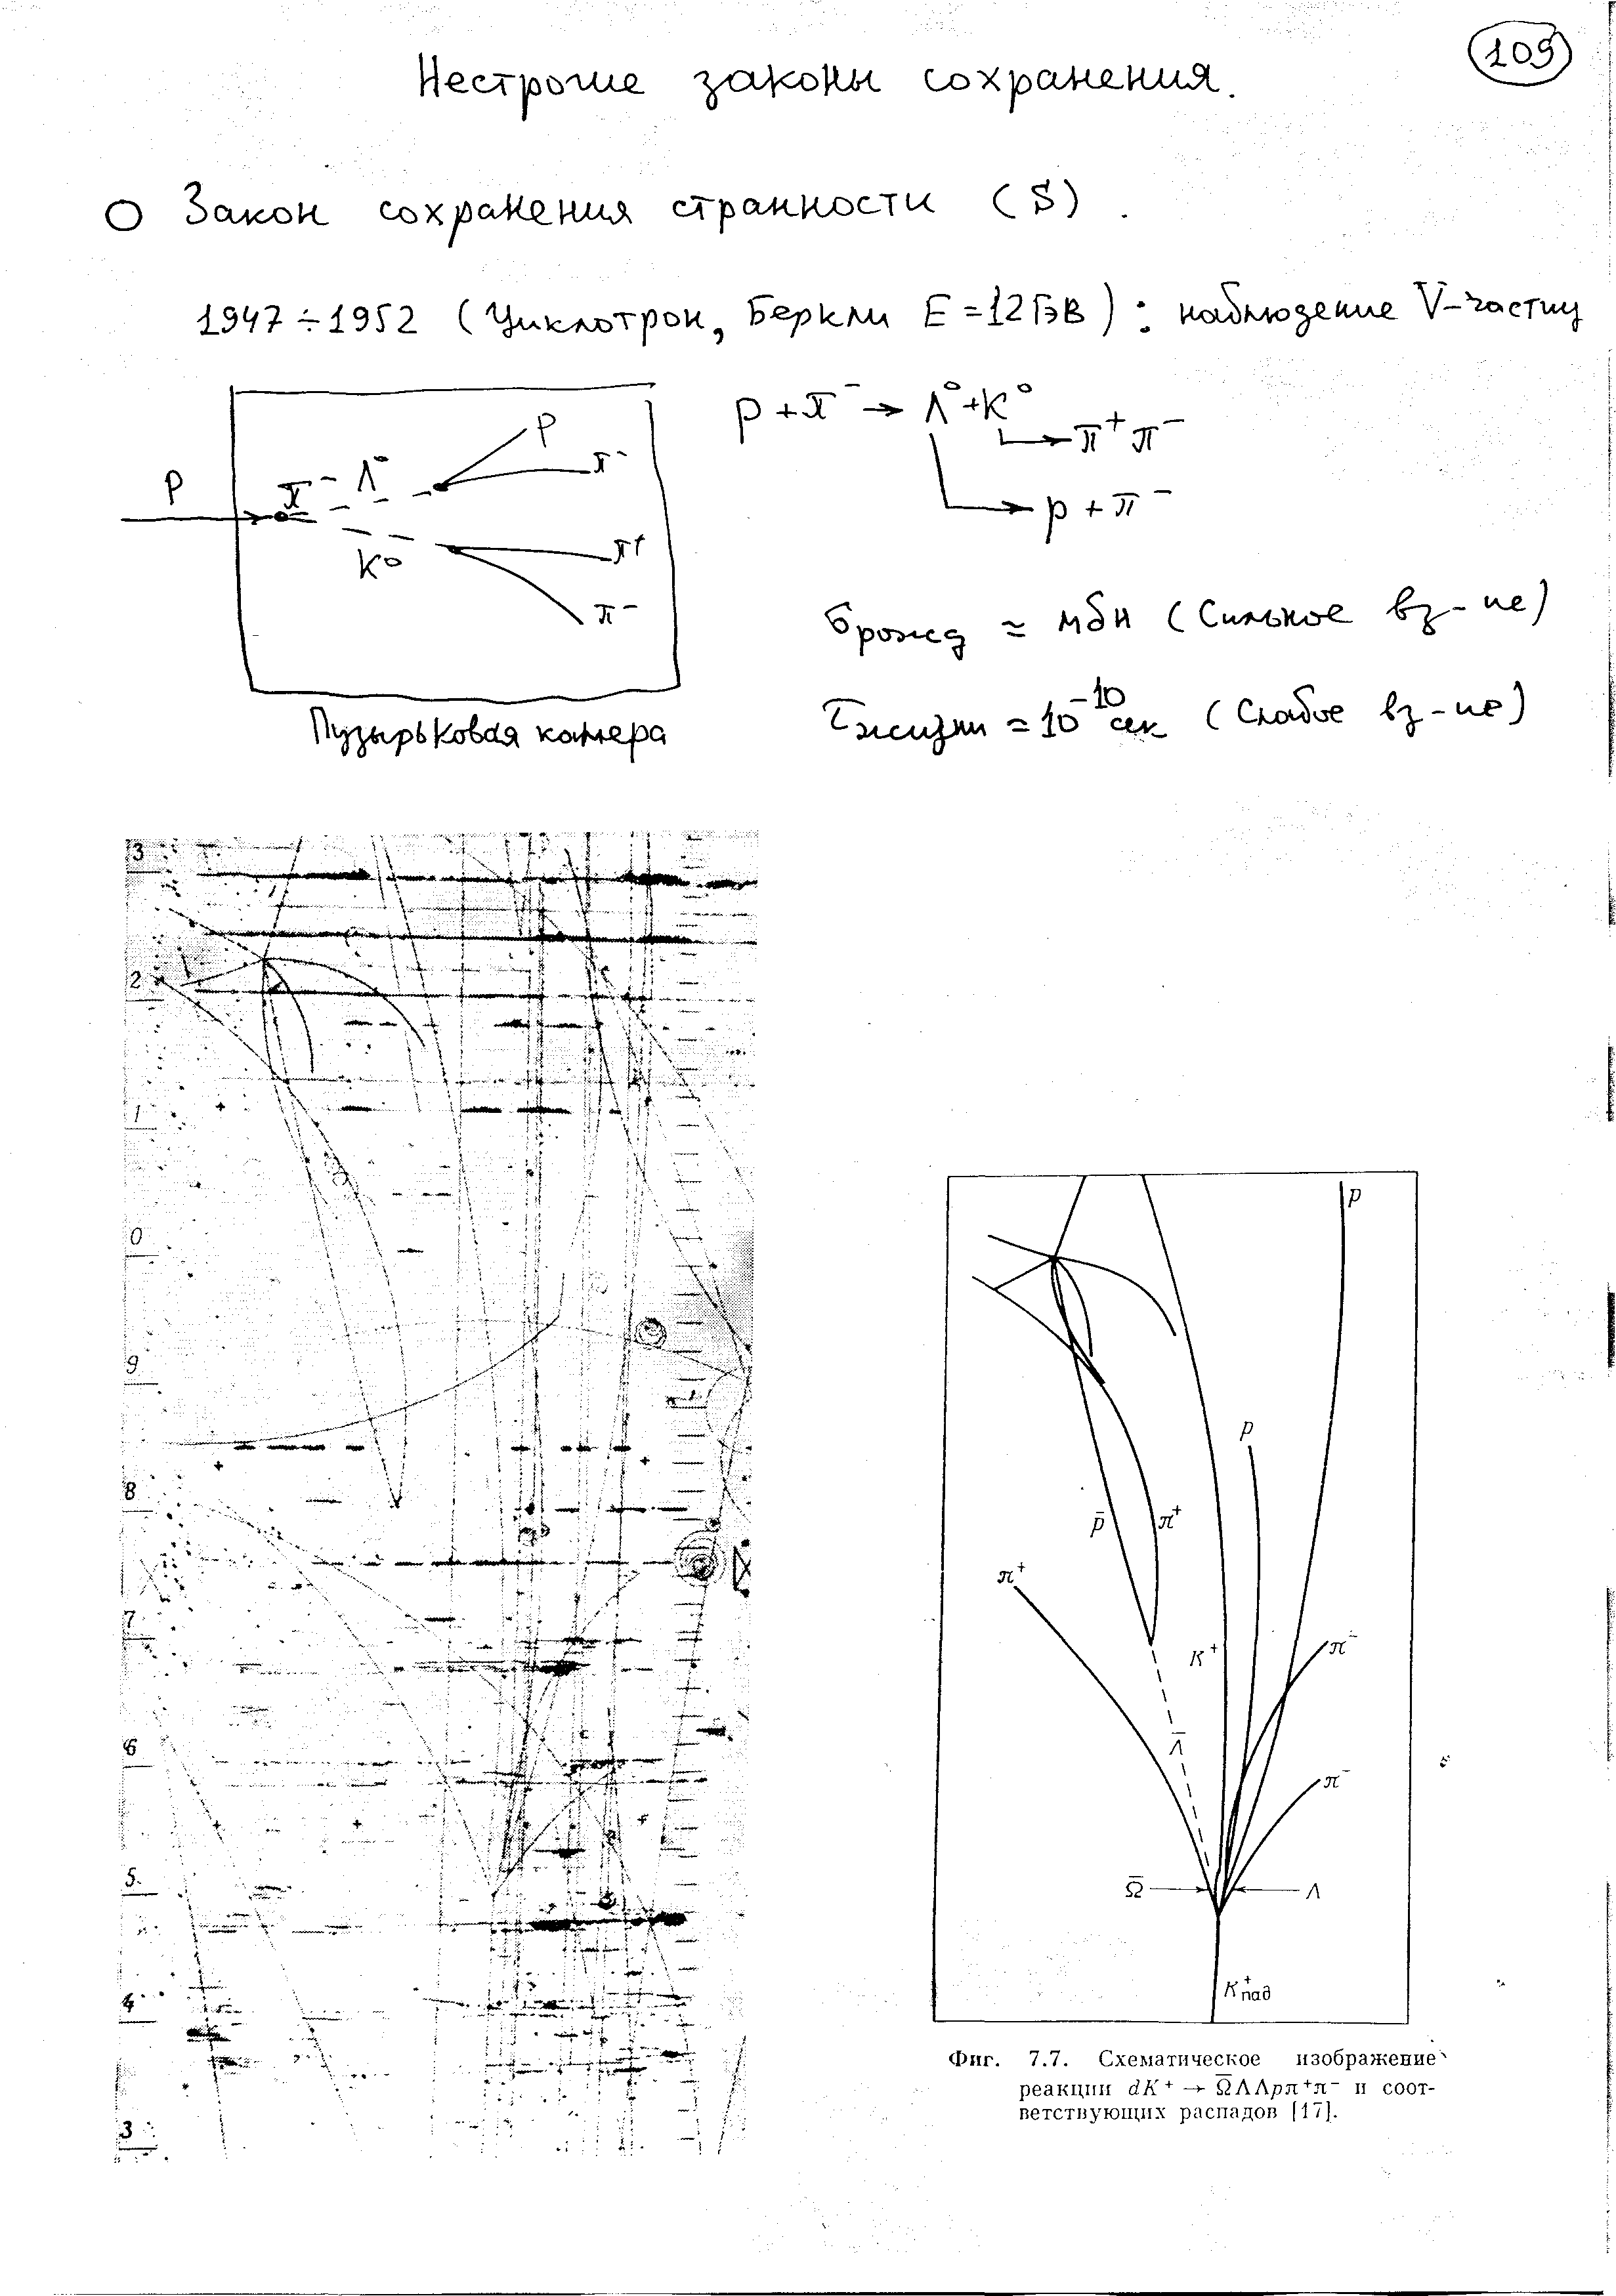 109
Нестрогие законы сохранения.
Закон сохранения странности (S).
1947÷1952 (Циклотрон, Беркли E=12ГэВ): наблюдение V-частиц
p + π⁻ → Λ⁰ + K⁰
→ π⁺ π⁻
→ p + π⁻
p
π⁻ Λ⁰
p
π⁻
K⁰
π⁺
π⁻
σрожд ≈ мбн (Сильное вз-ие)
τжизни = 10⁻¹⁰ сек (Слабое вз-ие)
Пузырьковая камера
3
2
1
0
9
8
7
6
5
4
3
p
p
p̄
π⁺
π⁺
K⁺
π⁻
Λ̄
π⁻
Ω̄
Λ
K⁺пад
Фиг. 7.7. Схематическое изображение
реакции dK⁺ → Ω̄ΛΛpπ⁺π⁻ и соот-
ветствующих распадов [17].